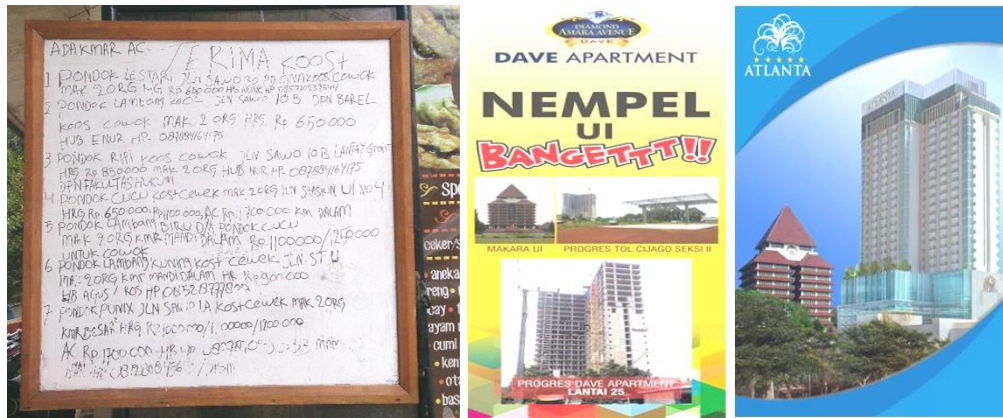 ADA KMAR AC
TERIMA KOOST
1 PONDOK LESTARI JLN SAWO COWOK
MAK 2 ORG HG RP 600 000
2 PONDOK LAMBANG KOCL JLN SAWO 10 B DPN BAREL
KOOS COWOK MAK 2 ORG HRG Rp 650000
HUB ENUR HP. 087884164175
3 PONDOK RIFI KOOS COWOK JLN SAWO 10 B LANTAY
HRG Rp 850000 MAK 2 ORG HUB NUR HP 087884164175
DPN FAKULTAS HUKUM
4 PONDOK CUCU KOST CEWEK MAK 2 ORG JLN STASIUN UI NO 4
HRG Rp 650000 AC Rp 1700 000 KM DALAM
5 PONDOK LAMBANG BIRU D/A PONDOK CUCU
MAK 2 ORG KMR MANDI DALAM Rp 1100000/1250000
UNTUK COWOK
6 PONDOK LAMBANG KUNING KOST CEWEK JLN. ST UI
MAK 2 ORG KMR MANDI DALAM HR Rp 900.000
HUB AGUS / ROS HP
7 PONDOK PUNIX JLN SAWO 1A KOST CEWEK MAK 2 ORG
KMR BESAR HRG 1200000
AC Rp 1700 000
Sp
ceker/s
aneka
reng
cay
ayam
cumi
ken
ota
bas
DIAMOND
AMARA AVENUE
DAVE
DAVE APARTMENT
NEMPEL
UI
BANGETTT!!
MAKARA UI
PROGRES TOL CIJAGO SEKSI II
PROGRES DAVE APARTMENT
LANTAI 25
ATLANTA